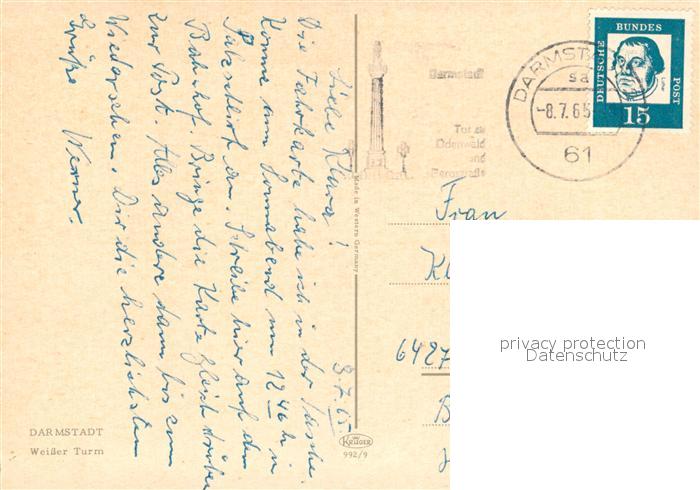 8.7.65
Liebe Klara!
Die Fahrkarte habe ich in der Tasche.
Komme am Sonnabend um 12 46 h in
Salzschlirf an. Schreibe hier auf dem
Bahnhof. Bringe die Karte gleich drüben
zur Post. Alles andere dann bis zum
Wiedersehen. Dir die herzlichsten
Grüße Werner.
DARMSTADT
Weißer Turm
Made in Western Germany
KRÜGER
992/9
Darmstadt
Tor zu
Odenwald
und
Bergstraße
DARMST
sa
-8.7.65
61
DEUTSCHE BUNDES POST
15
Frau
Kl
6427
B
privacy protection
Datenschutz